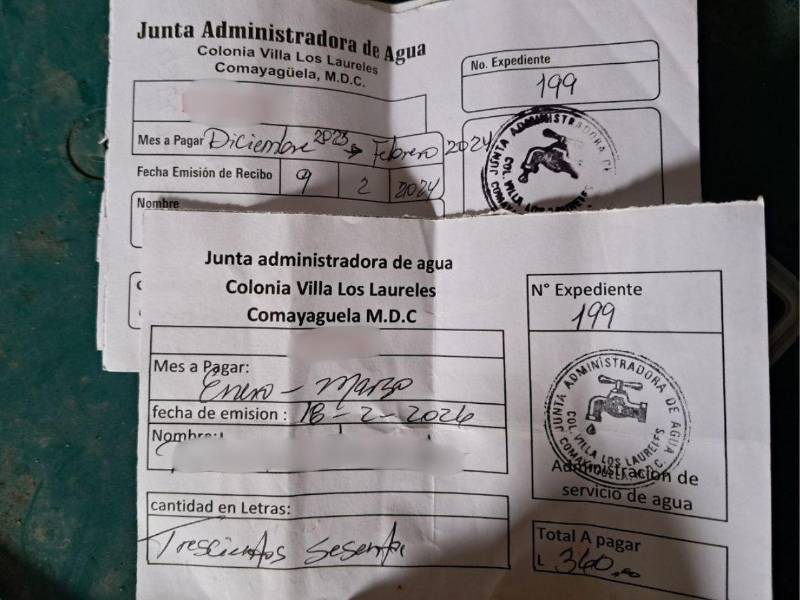 Junta Administradora de Agua
Colonia Villa Los Laureles
Comayagüela, M.D.C.
No. Expediente
199
Mes a Pagar Diciembre 2023 → Febrero 2024
Fecha Emisión de Recibo 9 2 2024
Nombre
JUNTA ADMINISTRADORA DE
COL. VILLA LOS
Junta administradora de agua
Colonia Villa Los Laureles
Comayaguela M.D.C
N° Expediente
199
Mes a Pagar:
Enero - Marzo
fecha de emision : 18-2-2026
Nombre:
JUNTA ADMINISTRADORA DE AGUA
COL. VILLA LOS LAURELES
COMAYAGUELA, M.D.C.
Administracion de
servicio de agua
cantidad en Letras:
Trescientos sesenta
Total A pagar
L 360.00